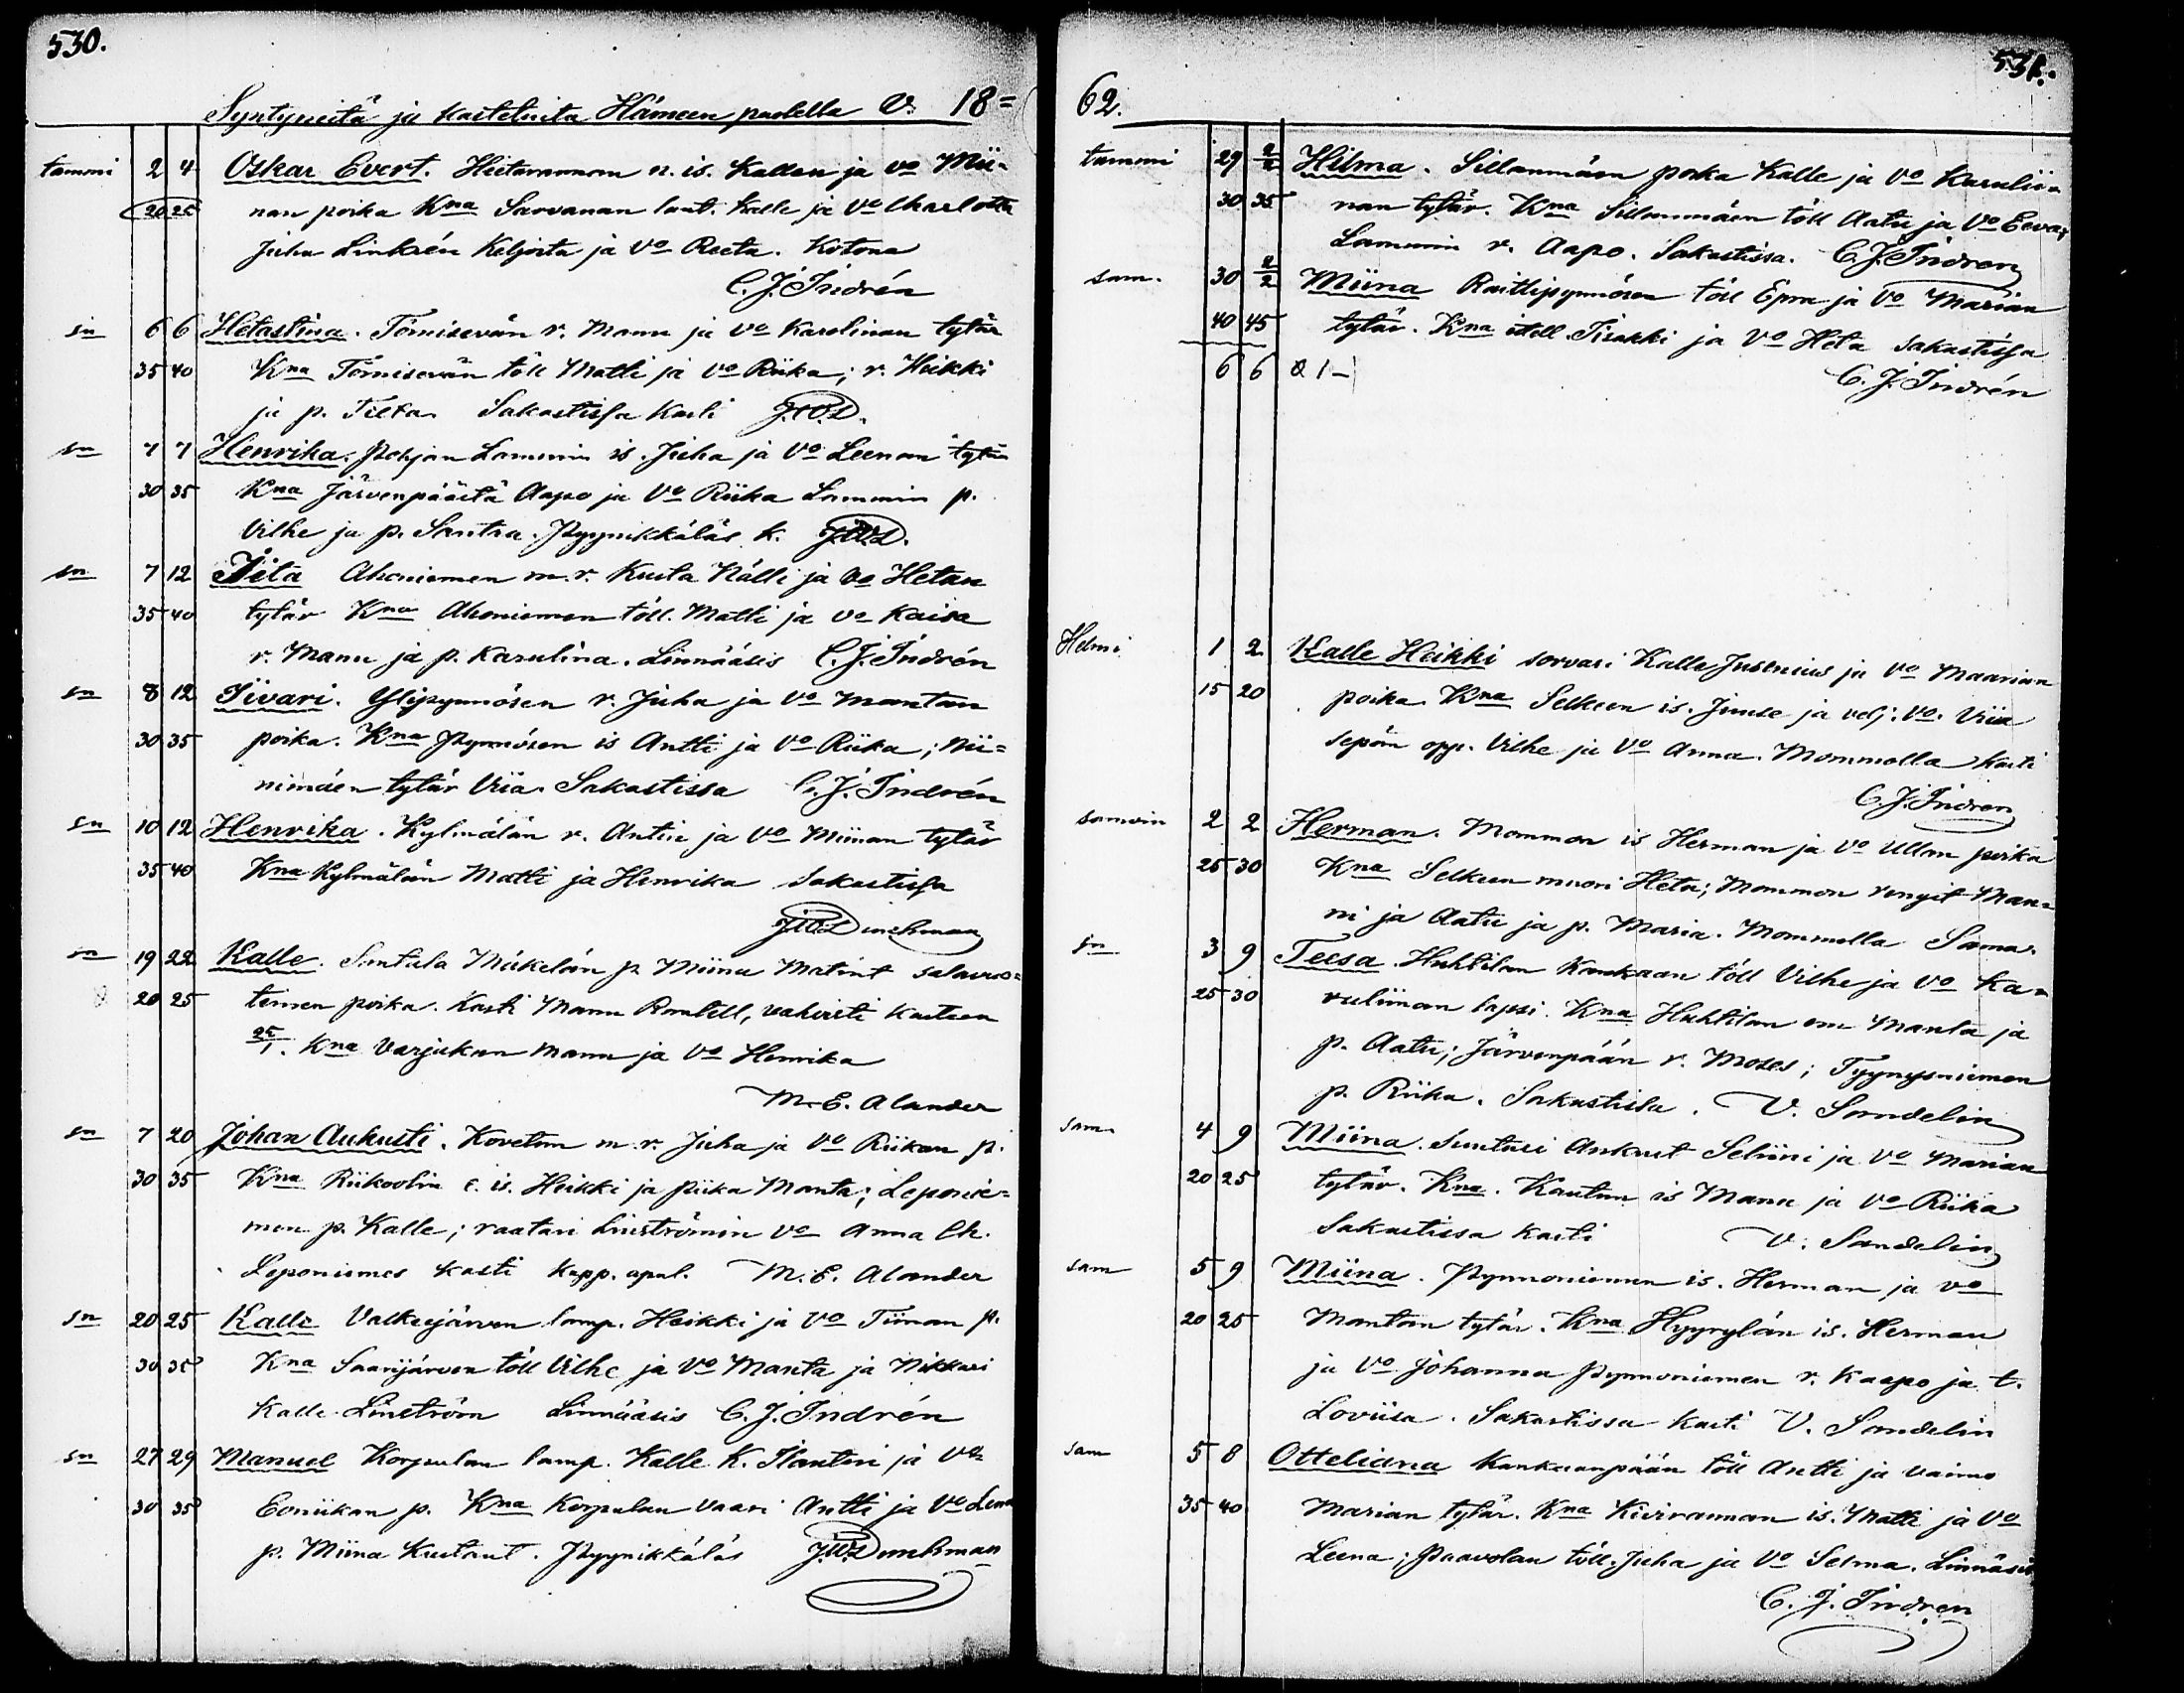 530.
Syntyneitä ja kastetuita Hämeen puolella V. 18=
tammi 2 4 Oskar Evert. Hietarannan n. is. Kallen ja vo Mii-
20 25 nan poika Kna Sarvanan laut. Kalle ja Vo Charlotta
Juha Linkrén Keljosta ja Vo Reeta. Kotona
C. J. Indrén
sn 6 6 Hetastina. Törnisevän r. Manu ja vo Karolinan tytär
35 40 Kna Törnisevän töll Matti ja vo Riika; r. Heikki
ja p. Tilta. Sakastissa kasti J.W.D.
sn 7 7 Henrika. Pohjan Lammin is. Juha ja Vo Leenan tytär
30 35 Kna Järvenpäästä Aapo ja Vo Riika Lammin p.
Vilhe ja p. Santra. Pyynikkäläs k. J.W.D.
sn 7 12 Iita Ahoniemen m. r. Kusta Nälli ja Vo Hetan
35 40 tytär Kna Ahoniemen töll. Matti ja vo Kaisa
r. Manu ja p. Karulina. Linnääsis C. J. Indrén
sn 8 12 Iivari. Ylipynnösen r. Juha ja Vo Mantan
30 35 poika. Kna Pynnösen is Antti ja Vo Riika; Nii=
nimäen tytär Viia. Sakastissa C. J. Indrén
sn 10 12 Henrika. Kylmälän r. Antin ja Vo Miinan tytär
35 40 Kna Kylmälän Matti ja Henrika Sakastissa
J.W.Dunchman
sn 19 22 Kalle. Suntala Mäkelän p. Miina Matint salavuo=
20 25 teinen poika. Kasti Manu Rantell, vahvisti kasteen
25/1. Kna Varjukan Manu ja Vo Henrika
M. E. Alander
sn 7 20 Johan Aukusti. Kovetun m. r. Juha ja Vo Riikan p.
30 35 Kna Riikoolin e. is. Heikki ja piika Manta; Leponie=
men p. Kalle; raatari Linströmin Vo Anna Ch.
Leponiemes kasti kapp. apul. M. E. Alander
sn 20 25 Kalle Valkejärven lamp. Heikki ja Vo Tiinan p.
30 35 Kna Saarijärven töll Vilhe ja Vo Manta ja Nikkari
Kalle Linström Linnääsis C. J. Indrén
sn 27 29 Manuel Korpulan lamp. Kalle K. Ilantin ja Vo
30 35 Eeniikan p. Kna Korpulan vaari Antti ja Vo Leena
p. Miina Kustant. Pyynikkäläs J.W.Dunchman
531.
62.
tammi 29 2/2 Hilma. Sillanmäen poika Kalle ja Vo Karulii=
30 35 nan tytär. Kna Sillanmäen töll Aatu ja Vo Eeva;
Lammin r. Aapo. Sakastissa. C. J. Indren
sam. 30 2/2 Miina Raittipynnösen töll Epra ja Vo Marian
40 45 tytär. Kna itell. Iisakki ja Vo Heta Sakastissa
6 6 & 1- C. J. Indrén
Helmi 1 2 Kalle Heikki sorvari Kalle Jusenius ja Vo Maarian
15 20 poika. Kna Selkeen is. Juuse ja velj. Vo. Viia
sepän opp. Vilhe ja Vo Anna. Mommolla kasti
C. J. Indren
samoin 2 2 Herman. Mommon is Herman ja Vo Ullan poika
25 30 Kna Selkeen muori Heta; Mommon rengit Man=
ni ja Aatu ja p. Maria. Mommolla Sama.
sn 3 9 Teesa. Huhtilan Kankaan töll Vilhe ja Vo Ka=
25 30 ruliinan lapsi. Kna Huhtilan em Manta ja
p. Aatu; Järvenpään r. Moses; Tyynysniemen
p. Riika. Sakastissa. V. Sandelin
sam. 4 9 Miina. Suutari Aukust Seliini ja Vo Marian
20 25 tytär. Kna. Kautun is Manu ja Vo Riika
Sakastissa kasti V. Sandelin
sam 5 9 Miina. Pynnoniemen is. Herman ja vo
20 25 Mantan tytär. Kna Hyyrylän is. Herman
ja Vo Johanna Pynnoniemen r. Kaapo ja t.
Loviisa. Sakastissa kasti V. Sandelin
sam 5 8 Otteliana Kankaanpään töll Antti ja vaimo
35 40 Marian tytär. Kna Kivirannan is. Matti ja Vo
Leena; Paavolan töll. Juha ja Vo Selma. Linnäsis
C. J. Indren